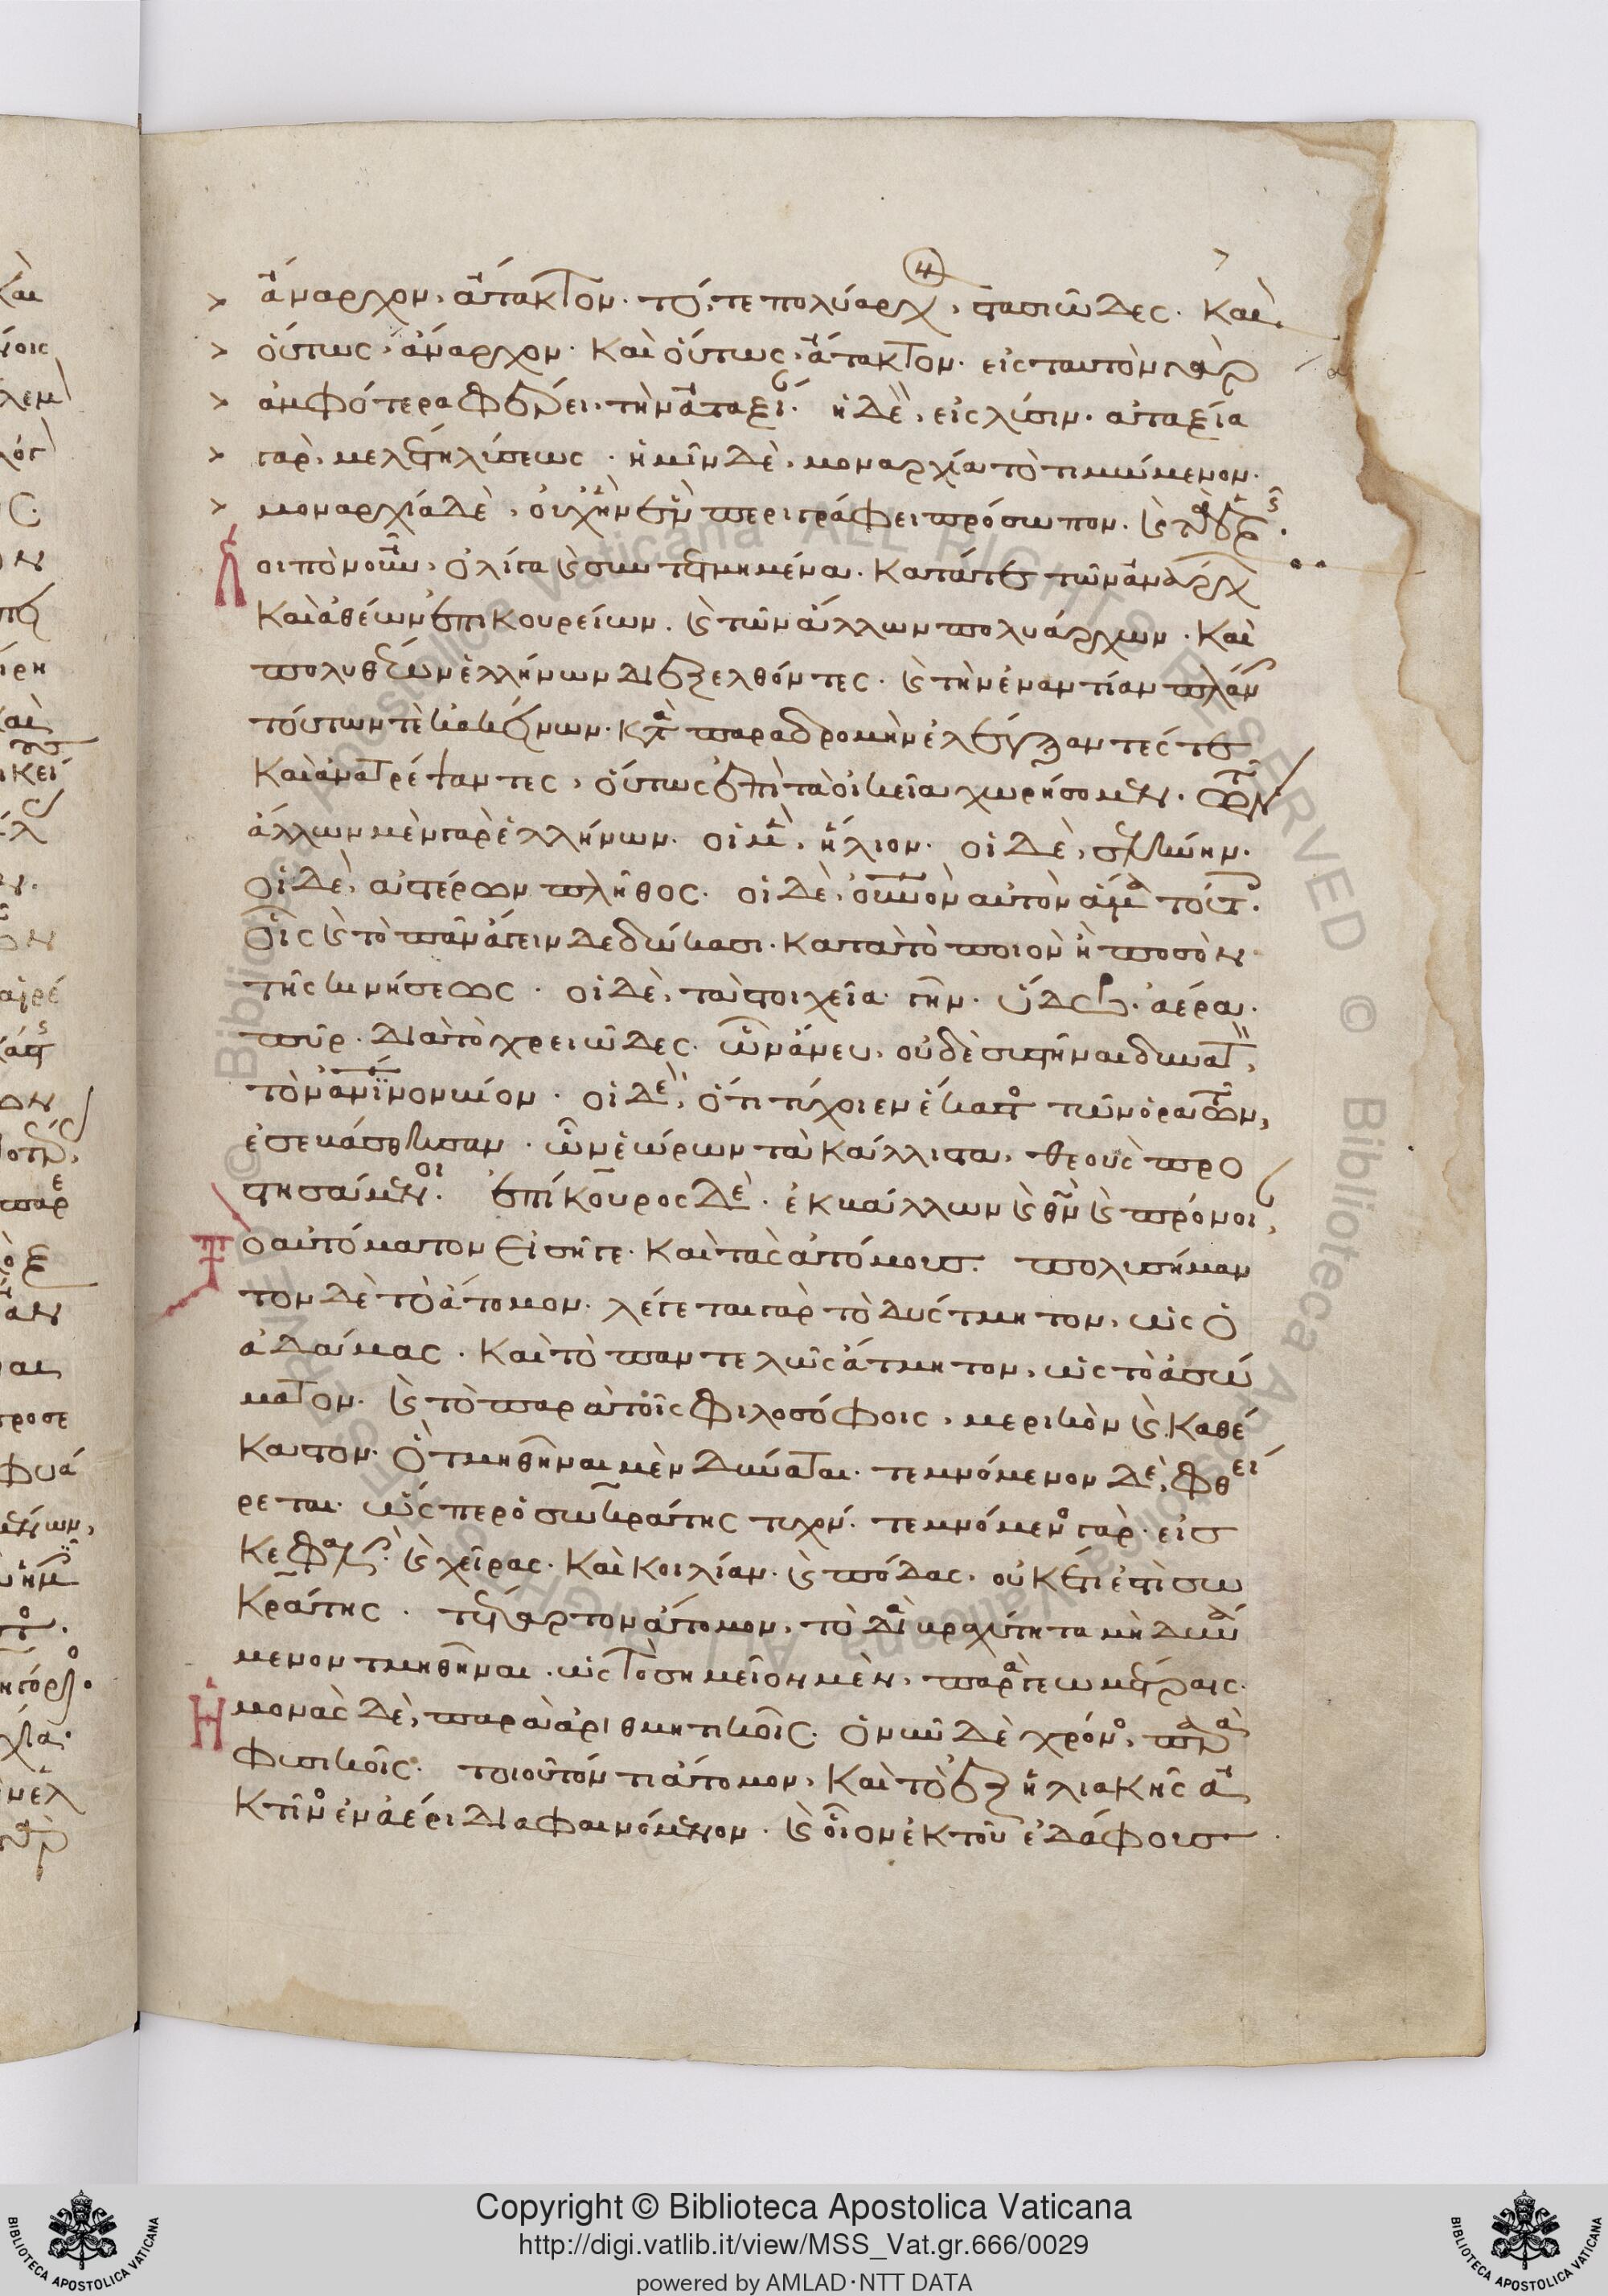 4
ἄναρχον, ἄτακτον. τό, τε πολύαρχ, στασιῶδες. καὶ
οὕτως, ἄναρχον. καὶ οὕτως, ἄτακτον. εἰς ταυτὸν γὰρ
ἀμφότερα φέρει, τὴν ἀταξί. ἡ δὲ, εἰς λύσιν. ἀταξία
γὰρ, μελέτη λύσεως. ἡμῖν δὲ, μοναρχία τὸ τιμώμενον.
μοναρχία δὲ, οὐχ ἣν ἓν περιγράφει πρόσωπον. καὶ
οιπὸν οὖν, ὀλίγα καὶ συντετμημένα. κατά τε τῶν ἀνάρχ
καὶ ἀθέων ἐπικουρείων. καὶ τῶν ἄλλων πολυάρχων. καὶ
πολυθέων ἑλλήνων διεξελθόντες. καὶ τὴν ἐναντίαν πλάν
τούτων τὲ κἀκείνων. κατὰ παραδρομὴν ἐλέγξαντές τε
καὶ ἀνατρέψαντες, οὕτως ἐπὶ τὰ οἰκεῖα χωρήσομεν. τῶν
ἄλλων μὲν γὰρ ἑλλήνων. οἱ μὲν, ἥλιον. οἱ δὲ, σελήνην.
οἱ δὲ, ἀστέρων πλῆθος. οἱ δὲ, οὐνὸν αὐτὸν ἅμα τούτ.
οἷς καὶ τὸ πᾶν ἄγειν δεδώκασι. κατὰ τὸ ποιὸν ἢ ποσὸν
τῆς κινήσεως. οἱ δὲ, τὰ στοιχεῖα. γῆν. ὕδωρ. ἀέρα.
πῦρ. διὰ τὸ χρειῶδες. ὧν ἄνευ, οὐδὲ συστῆναι δυνατ,
τὸν ἀνϊνον βίον. οἱ δὲ, ὅτι τύχοιεν ἕκαστ τῶν ὁρατῶν,
ἐσεβάσθησαν. ὧν ἑώρων τὰ κάλλιστα, θεοὺς προ
στησάμενοι. ἐπίκουρος δὲ. ἐκβάλλων καὶ θν καὶ πρόνοι,
ὸ αὐτόματον εἰσῆγε. καὶ τὰς ἀτόμους. πολυσήμαν
τον δὲ τὸ ἄτομον. λέγεται γὰρ τὸ δύστμητον, ὡς ὁ
ἀδάμας. καὶ τὸ παντελῶς ἄτμητον, ὡς τὸ ἀσώ
ματον. καὶ τὸ παρὰ τοῖς φιλοσόφοις, μερικὸν καὶ καθέ
καστον. ὃ τμηθῆναι μὲν δύναται. τεμνόμενον δὲ, φθεί
ρεται. ὥσπερ ὁ σωκράτης τυχόν. τεμνόμενος γὰρ. εἰς
κεφαλὴν. καὶ χεῖρας. καὶ κοιλίαν. καὶ πόδας. οὐκέτι ἐστὶ σω
κράτης. τέταρτον ἄτομον, τὸ διὰ βραχύτητα μὴ δυνά
μενον τμηθῆναι. ὡς τὸ σημεῖον μὲν, παρὰ γεωμέτραις.
μονὰς δὲ, παρὰ ἀριθμητικοῖς. ὁ νῦν δὲ χρόνος, παρὰ
φυσικοῖς. τοιοῦτόν τι ἄτομον, καὶ τὸ ἐξ ἡλιακῆς ἀ
κτῖνος ἐν ἀέρι διαφαινόμενον. καὶ οἷον ἐκ τοῦ ἐδάφους
Copyright © Biblioteca Apostolica Vaticana
http://digi.vatlib.it/view/MSS_Vat.gr.666/0029
powered by AMLAD·NTT DATA